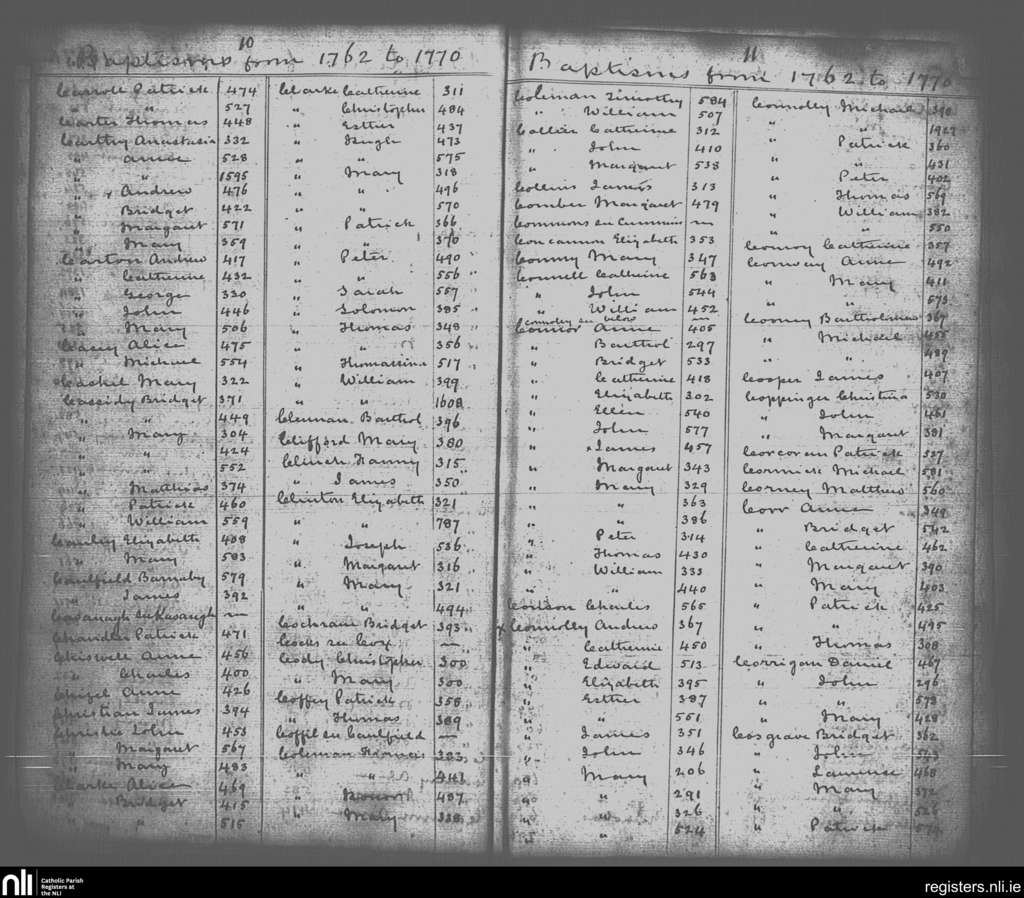 10
Baptisms from 1762 to 1770
Carroll Patrick 474
" " 527
Carter Thomas 448
Carthy Anastasia 332
" Anne 528
" " 1595
" x Andrew 476
" Bridget 422
" Margaret 571
" Mary 359
Carton Andrew 417
" Catherine 432
" George 330
" John 446
" Mary 506
Casey Alice 475
" Michael 554
Cashil Mary 322
Cassidy Bridget 371
" " 449
" Mary 304
" " 424
" " 552
" Matthias 374
" Patrick 460
" William 559
Cauley Elizabeth 408
" Mary 583
Caulfield Barnaby 579
" James 392
Cavanagh see Kavanagh —
Chandler Patrick 471
Chiswell Anne 456
" Charles 400
Anne 426
Christian James 394
Christie John 453
" Margaret 567
" Mary 483
Clarke Alice 469
" Bridget 415
" " 515
Clarke Catherine 311
" Christopher 484
" Esther 437
" Hugh 473
" " 575
" Mary 318
" " 496
" " 570
" Patrick 366
" " 370
" Peter 490
" " 556
" Sarah 557
" Solomon 385
" Thomas 348
" " 356
" Thomassina 517
" William 399
" " 1608
Clennan Barthol 396
Clifford Mary 380
Clinch Fanny 315
" James 350
Clinton Elizabeth 321
" " 787
" Joseph 536
" Margaret 316
" Mary 321
" " 494
Cochran Bridget 393
Cocks see Cox —
Cody Christopher 300
" Mary 300
Coffey Patrick 358
" Thomas 389
Coffil see Caulfield —
Coleman Thomas 383
" "
" Honor 487
" Mary 338
11
Baptisms from 1762 to 1770
Coleman Timothy 584
" William 507
Collier Catherine 312
" John 410
" Margaret 538
Collins James 313
Comber Margaret 479
Commons see Cummins —
Concannon Elizabeth 353
Conmy Mary 347
Connell Catherine 563
" John 544
" William 452
Connolly see below —
Connor Anne 405
" Barthol 297
" Bridget 533
" Catherine 418
" Elizabeth 302
" Ellen 540
" John 577
" x James 457
" Margaret 343
" Mary 329
" " 363
" " 386
" Peter 314
" Thomas 430
" William 333
" " 440
Conson Charles 565
x Connolly Andrew 367
" Catherine 450
" Edward 513
" Elizabeth 395
" Esther 387
" " 551
" James 351
" John 346
" Mary 206
" " 291
" " 326
" " 524
Connolly Michael 390
" " 1927
" Patrick 360
" " 431
" Peter 402
" Thomas 569
" William 382
" " 550
Conroy Catherine 357
Conway Anne 492
" Mary 411
" " 573
Cooney Bartholomew 367
" Michael 455
" " 489
Cooper James 407
Coppinger Christina 530
" John 461
" Margaret 381
Corcoran Patrick 527
Cormick Michael 581
Corney Matthew 560
Corr Anne 349
" Bridget 542
" Catherine 462
" Margaret 390
" Mary 403
" Patrick 425
" " 495
" Thomas 308
Corrigan Daniel 467
" John 296
" " 578
" Mary 428
Cosgrave Bridget 362
" John 543
" Laurence 468
" Mary 372
" " 526
" Patrick
nli
Catholic Parish
Registers at
the NLI
registers.nli.ie